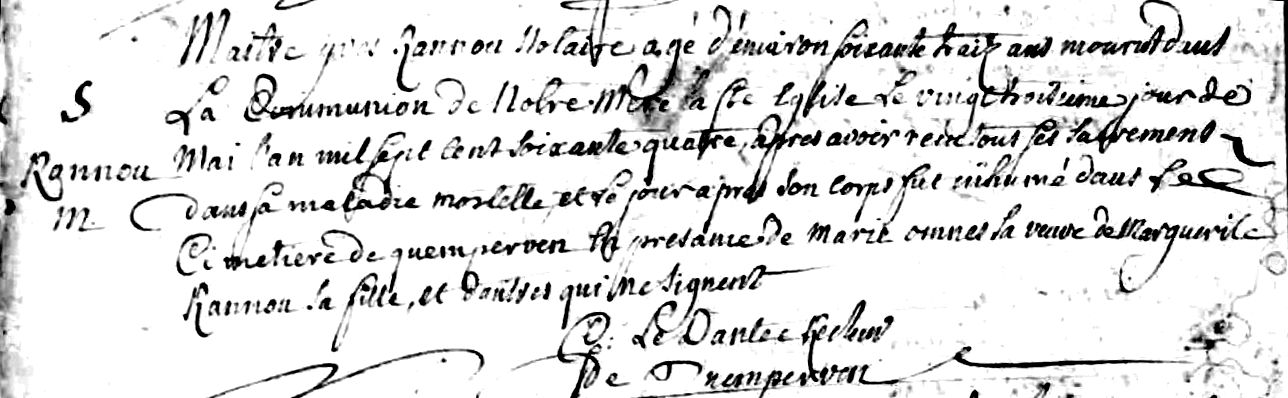 Maitre yves Rannou Nolaire agé d'environ soixante traiz ans mourut dans
S
La Communion de Notre Mere la Ste Eglise Le vingt troisieme jour de
Rannou
Mai l'an mil sept cent soixante quatre, apres avoir reçu tous ses sacrement
M.
dans sa maladie mortelle, et le jour apres son corps fut inhumé dans le
Cimetiere de quemperven En presance de Marie omnes sa veuve de Marguerite
Rannou sa fille, et d'autres qui ne signent
Le Dantec Recteur
De Quemperven